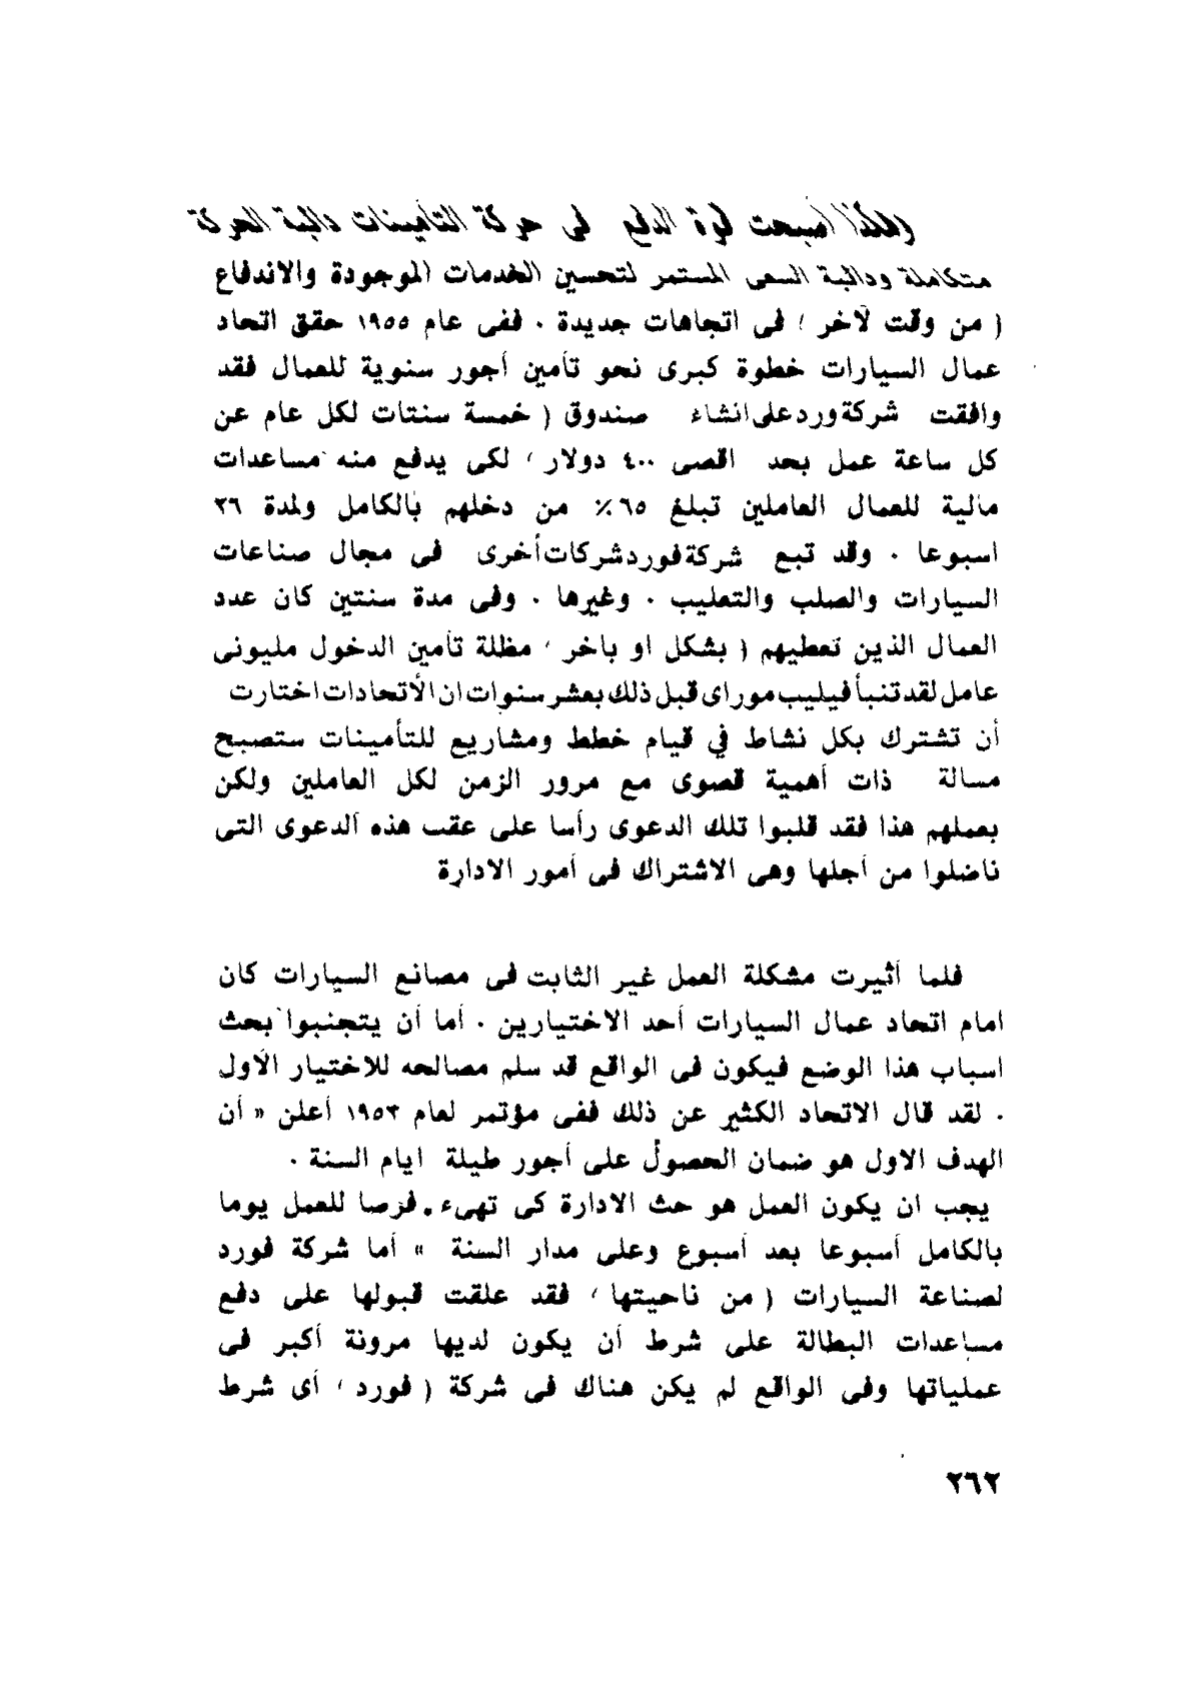 وهكذا أصبحت قوة الدفع فى حركة التأمينات دائبة الحركة
متكاملة ودائبة السعى المستمر لتحسين الخدمات الموجودة والاندفاع
( من وقت لآخر ) فى اتجاهات جديدة . ففى عام ١٩٥٥ حقق اتحاد
عمال السيارات خطوة كبرى نحو تأمين أجور سنوية للعمال فقد
وافقت شركة ورد على انشاء صندوق ( خمسة سنتات لكل عام عن
كل ساعة عمل بحد اقصى ٤٠٠ دولار ) لكى يدفع منه مساعدات
مالية للعمال العاملين تبلغ ٦٥٪ من دخلهم بالكامل ولمدة ٢٦
اسبوعا . وقد تبع شركة فورد شركات أخرى فى مجال صناعات
السيارات والصلب والتعليب . وغيرها . وفى مدة سنتين كان عدد
العمال الذين تعطيهم ( بشكل او باخر ) مظلة تأمين الدخول مليونى
عامل لقد تنبأ فيليب موراى قبل ذلك بعشر سنوات ان الأتحادات اختارت
أن تشترك بكل نشاط في قيام خطط ومشاريع للتأمينات ستصبح
مسالة ذات أهمية قصوى مع مرور الزمن لكل العاملين ولكن
بعملهم هذا فقد قلبوا تلك الدعوى رأسا على عقب هذه الدعوى التى
ناضلوا من أجلها وهى الاشتراك فى أمور الادارة
فلما أثيرت مشكلة العمل غير الثابت فى مصانع السيارات كان
امام اتحاد عمال السيارات أحد الاختيارين . أما أن يتجنبوا بحث
اسباب هذا الوضع فيكون فى الواقع قد سلم مصالحه للاختيار الأول
. لقد قال الاتحاد الكثير عن ذلك ففى مؤتمر لعام ١٩٥٣ أعلن « أن
الهدف الاول هو ضمان الحصول على أجور طيلة ايام السنة .
يجب ان يكون العمل هو حث الادارة كى تهىء . فرصا للعمل يوما
بالكامل أسبوعا بعد أسبوع وعلى مدار السنة » أما شركة فورد
لصناعة السيارات ( من ناحيتها ) فقد علقت قبولها على دفع
مساعدات البطالة على شرط أن يكون لديها مرونة أكبر فى
عملياتها وفى الواقع لم يكن هناك فى شركة ( فورد ) أى شرط
٢٦٢